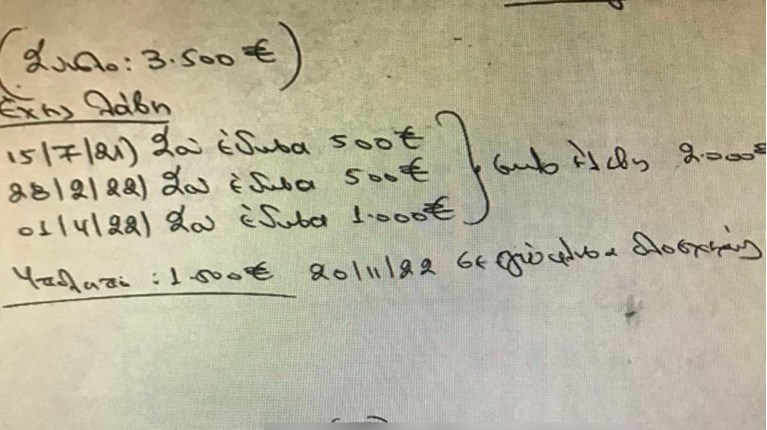 (Σύνολο: 3.500 €)
Έχεις λάβη
15/7/21) Σου έδωσα 500€
28/2/22) Σου έδωσα 500€
01/4/22) Σου έδωσα 1.000€
2.000€
Υπόλοιπο : 1.500€ 20/11/22 σε